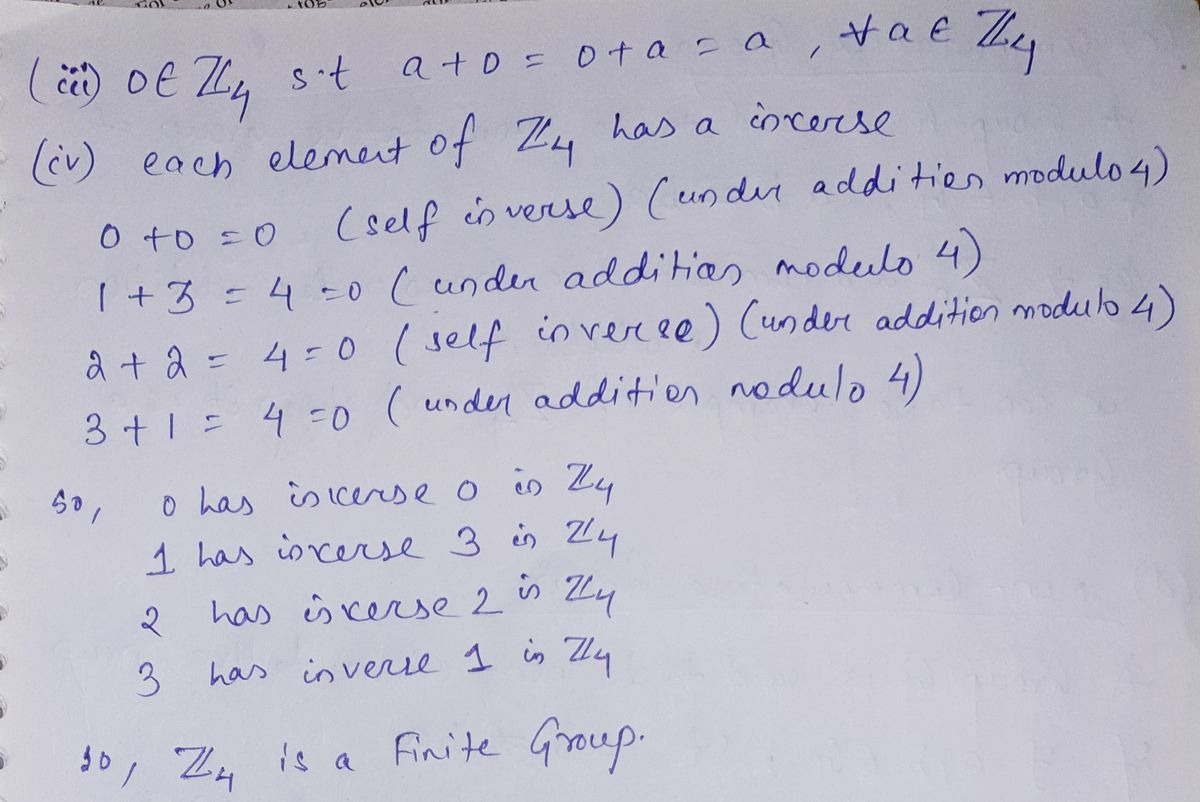 (iii) 0 ∈ ℤ₄ s.t a + 0 = 0 + a = a , ∀ a ∈ ℤ₄
(iv) each element of ℤ₄ has a inverse
0 + 0 = 0 (self inverse) (under addition modulo 4)
1 + 3 = 4 = 0 (under addition modulo 4)
2 + 2 = 4 = 0 (self inverse) (under addition modulo 4)
3 + 1 = 4 = 0 (under addition modulo 4)
so, 0 has inverse 0 in ℤ₄
1 has inverse 3 in ℤ₄
2 has inverse 2 in ℤ₄
3 has inverse 1 in ℤ₄
so, ℤ₄ is a Finite Group.